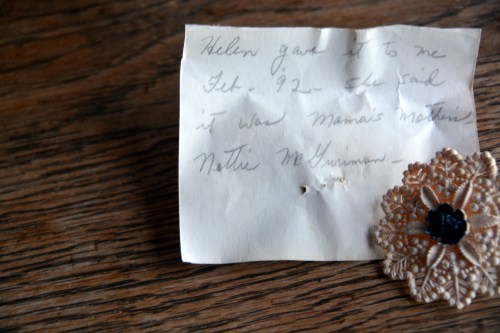 Helen gave it to me
Feb. 92 - she said
it was Mama's mother's
Nettie